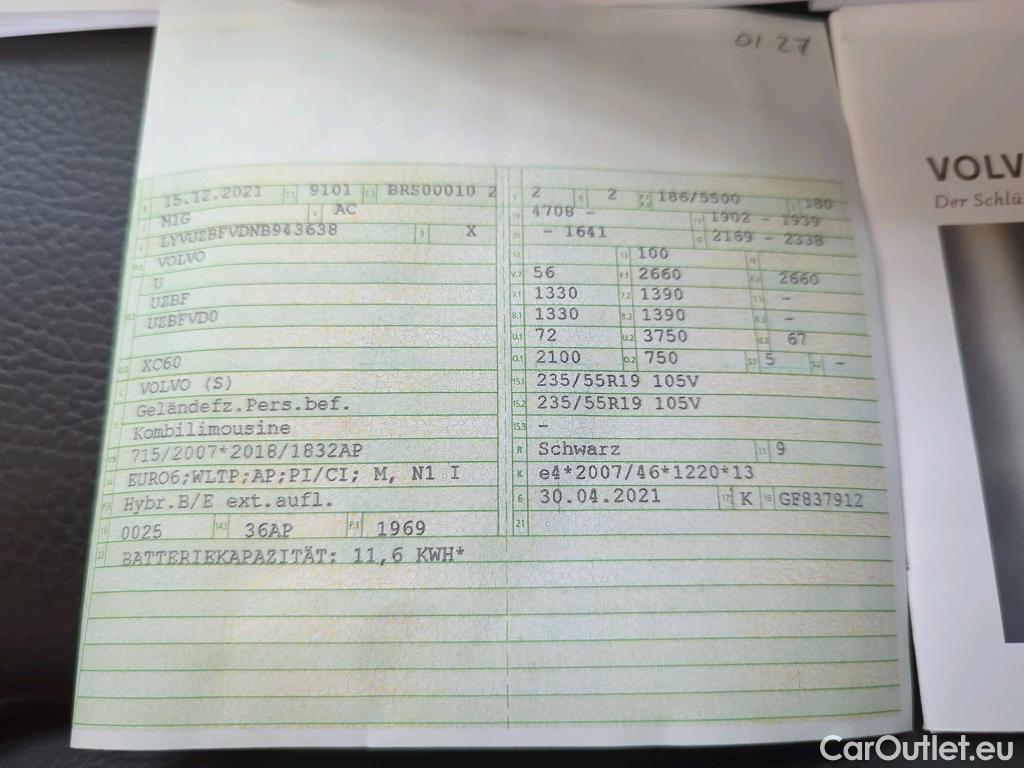 01 27
15.12.2021 9101 BRS00010 2
M1G AC
LYVUZBFVDNB943638 X
VOLVO
U
UZBF
UZBFVD0
XC60
VOLVO (S)
Geländefz.Pers.bef.
Kombilimousine
715/2007*2018/1832AP
EURO6;WLTP;AP;PI/CI; M, N1 I
Hybr.B/E ext.aufl.
10 0025 14.1 36AP P.1 1969
22 BATTERIEKAPAZITÄT: 11,6 KWH*
2 2 186/5500 180
4708 - 1902 - 1939
- 1641 2169 - 2338
100
V.7 56 F.1 2660 F.2 2660
7.1 1330 7.2 1390 -
8.1 1330 8.2 1390 -
U.1 72 U.2 3750 U.3 67
O.1 2100 O.2 750 S.1 5 S.2 -
15.1 235/55R19 105V
15.2 235/55R19 105V
15.3 -
R Schwarz 11 9
K e4*2007/46*1220*13
6 30.04.2021 17 K 16 GF837912
21
VOLV
Der Schlü
CarOutlet.eu